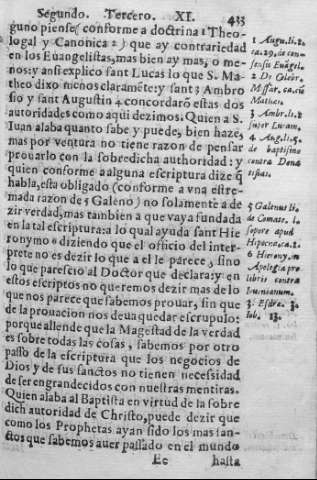 Segundo. Tercero. XI. 433
guno piense (conforme a doctrina 1 Theo-
logal y Canonica 2) que ay contrariedad
en los Euangelistas, mas bien ay mas, o me-
nos: y ansi explico sant Lucas lo que S. Ma-
theo dixo menos claramẽte: y sant 3 Ambro
sio y sant Augustin 4 concordarõ estas dos
autoridades como aqui dezimos. Quien a S.
Iuan alaba quanto sabe y puede, bien haze,
mas por ventura no tiene razon de pensar
prouarlo con la sobredicha authoridad: y
quien conforme a alguna escriptura dize q̃
habla, esta obligado (conforme a vna estre-
mada razon de 5 Galeno) no solamente a de
zir verdad, mas tambien a que vaya fundada
en la tal escriptura: a lo qual ayuda sant Hie
ronymo 6 diziendo que el officio del inter-
prete no es dezir lo que a el le parece, sino
lo que parescio al Doctor que declara: y en
estos escriptos no queremos dezir mas de lo
que nos parece que sabemos prouar, sin que
de la prouacion nos deua quedar escrupulo:
porque allende que la Magestad de la verdad
es sobre todas las cosas, sabemos por otro
passo de la escriptura que los negocios de
Dios y de sus sanctos no tienen necessidad
de ser engrandecidos con nuestras mentiras.
Quien alaba al Baptista en virtud de la sobre
dich autoridad de Christo, puede dezir que
como los Prophetas ayan sido los mas san-
ctos que sabemos auer passado en el mundo
Ee hasta
1 Augu. li. 2.
ca. 29. de con-
sensu Euãgel.
2 Di. Celebr.
Missar. ca. cũ
Mathei.
3 Ambr. li. 2
super Lucam.
4 Aug. li. 5.
de baptismo
contra Dona
tistas.
5 Galenus li.
de Comate.
sopore apud
Hipocra. ca. 2.
6 Hierony. in
Apologia pro
libris contra
Iouinianum.
3. Esdræ. 3.
Iob. 13.